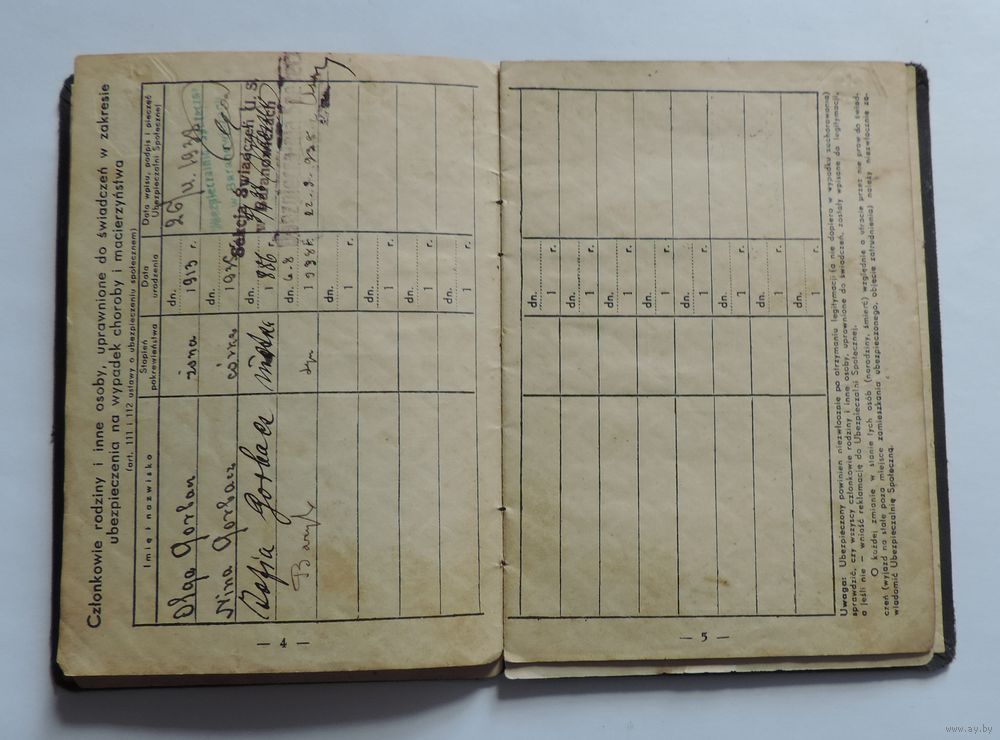 Członkowie rodziny i inne osoby, uprawnione do świadczeń w zakresie
ubezpieczenia na wypadek choroby i macierzyństwa
(art. 111 i 112 ustawy o ubezpieczeniu społecznem)
Imię i nazwisko
Stopień
pokrewieństwa
Data
urodzenia
Data wpisu, podpis i pieczęć
Ubezpieczalni Społecznej
Olga
żona
dn.
1913 r.
Nina
córka
dn.
dn.
1886 r.
dn. 6.8
1938 r.
22.9.938
Sekcja Świadczeń U. S.
w Baranowiczach
dn.
1 r.
dn.
1 r.
dn.
1 r.
dn.
1 r.
— 4 —
dn.
1 r.
dn.
1 r.
dn.
1 r.
dn.
1 r.
dn.
1 r.
dn.
1 r.
dn.
1 r.
dn.
1 r.
Uwaga: Ubezpieczony powinien niezwłocznie po otrzymaniu legitymacji (a nie dopiero w wypadku zachorowania)
sprawdzić, czy wszyscy członkowie rodziny i inne osoby, uprawnione do świadczeń, zostały wpisane do legitymacji,
a jeśli nie – wnieść reklamację do Ubezpieczalni Społecznej.
O każdej zmianie w stanie tych osób (narodziny, śmierć) względnie o utracie przez nie praw do świad-
czeń (wyjazd na stałe poza miejsce zamieszkania ubezpieczonego, objęcie zatrudnienia) należy niezwłocznie za-
wiadomić Ubezpieczalnię Społeczną.
— 5 —
www.ay.by